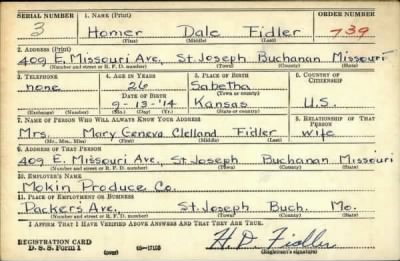 SERIAL NUMBER 1. NAME (Print) ORDER NUMBER
3 Homer Dale Fidler 739
(First) (Middle) (Last)
2. ADDRESS (Print)
409 E. Missouri Ave., St. Joseph Buchanan Missouri
(Number and street or R. F. D. number) (Town) (County) (State)
3. TELEPHONE 4. AGE IN YEARS 5. PLACE OF BIRTH 6. COUNTRY OF CITIZENSHIP
none 26 Sabetha
DATE OF BIRTH (Town or county)
9-13-'14 Kansas U.S.
(Exchange) (Number) (Mo.) (Day) (Yr.) (State or country)
7. NAME OF PERSON WHO WILL ALWAYS KNOW YOUR ADDRESS 8. RELATIONSHIP OF THAT PERSON
Mrs. Mary Geneva Clelland Fidler wife
(Mr., Mrs., Miss) (First) (Middle) (Last)
9. ADDRESS OF THAT PERSON
409 E. Missouri Ave., St. Joseph Buchanan Missouri
(Number and street or R. F. D. number) (Town) (County) (State)
10. EMPLOYER'S NAME
Mokin Produce Co.
11. PLACE OF EMPLOYMENT OR BUSINESS
Packers Ave., St. Joseph Buch. Mo.
(Number and street or R. F. D. number) (Town) (County) (State)
I AFFIRM THAT I HAVE VERIFIED ABOVE ANSWERS AND THAT THEY ARE TRUE.
REGISTRATION CARD H. D. Fidler
D. S. S. Form 1 (over) (Registrant's signature)